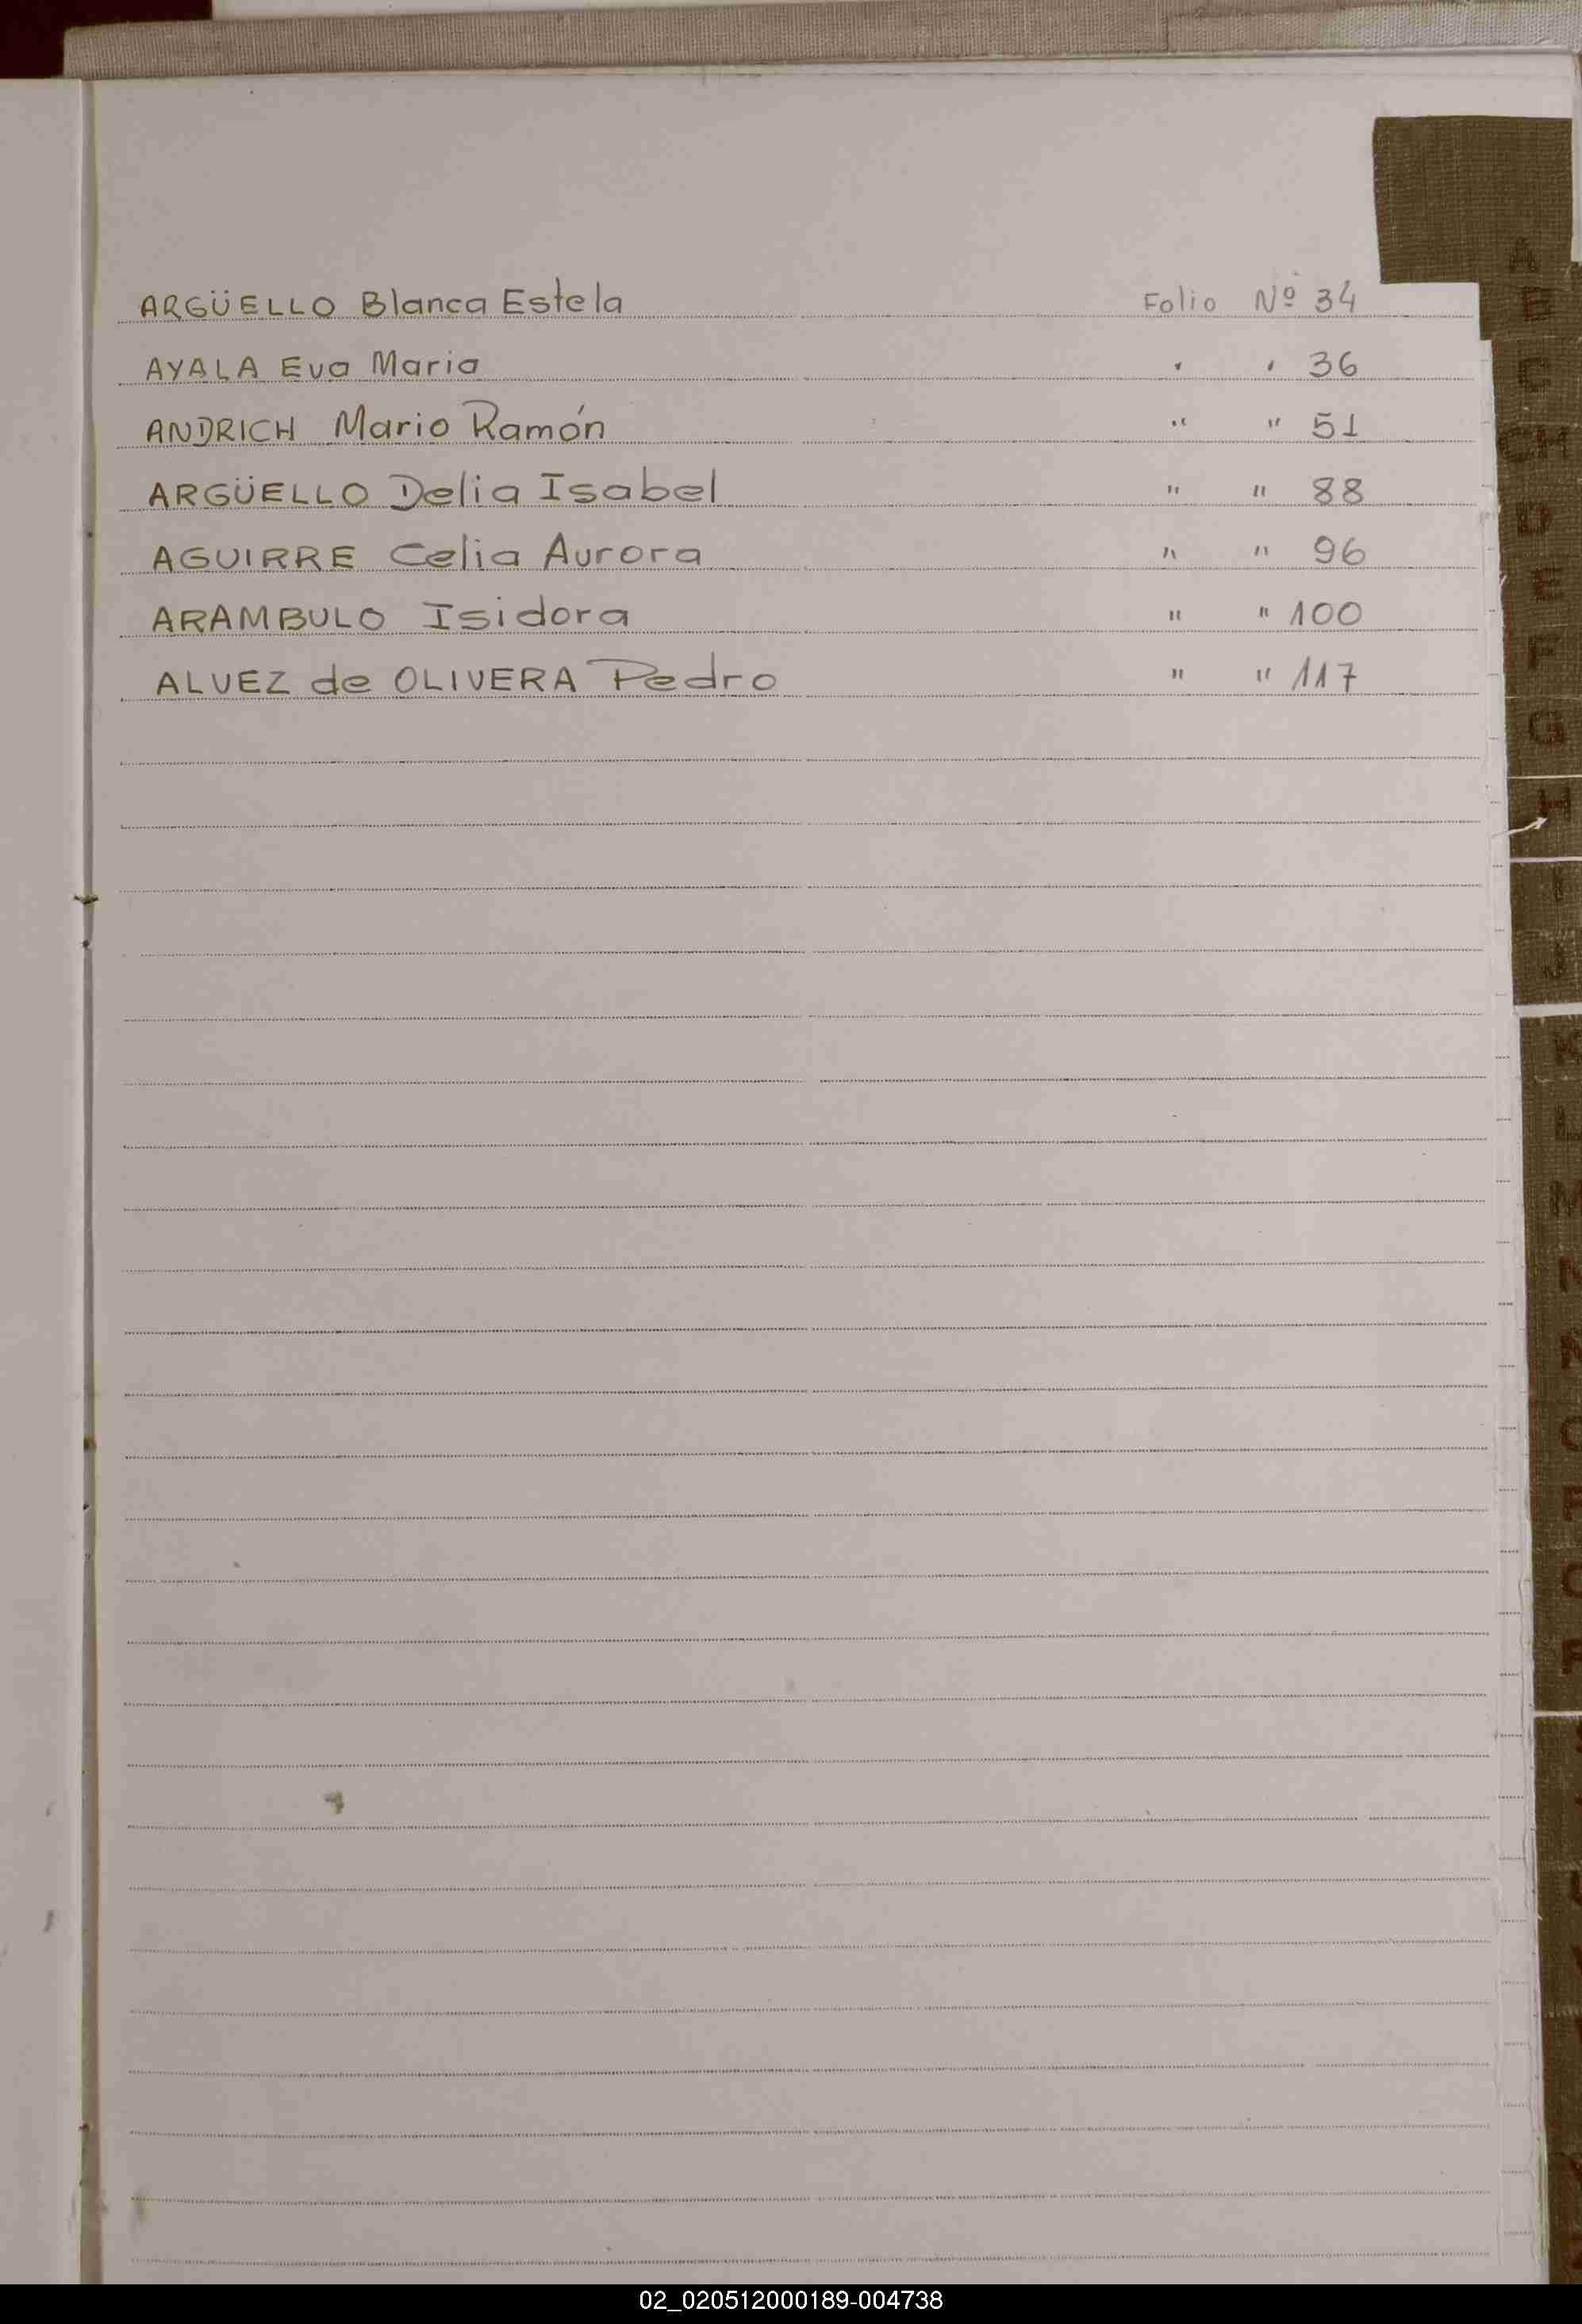 ARGÜELLO Blanca Estela Folio Nº 34
AYALA Eva Maria " " 36
ANDRICH Mario Ramón " " 51
ARGÜELLO Delia Isabel " " 88
AGUIRRE Celia Aurora " " 96
ARAMBULO Isidora " " 100
ALVEZ de OLIVERA Pedro " " 117
A
B
C
CH
D
E
F
G
H
I
J
K
L
M
N
02_020512000189-004738